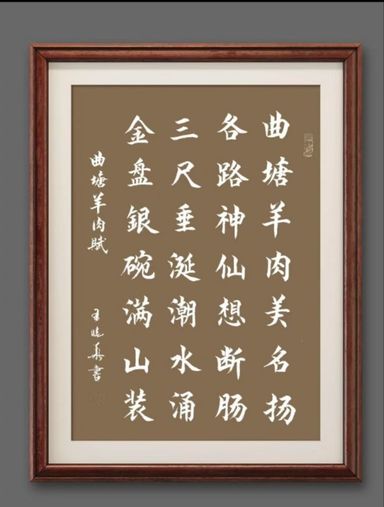 曲塘羊肉美名扬
各路神仙想断肠
三尺垂涎潮水涌
金盘銀碗满山装
曲塘羊肉赋
王晓真書